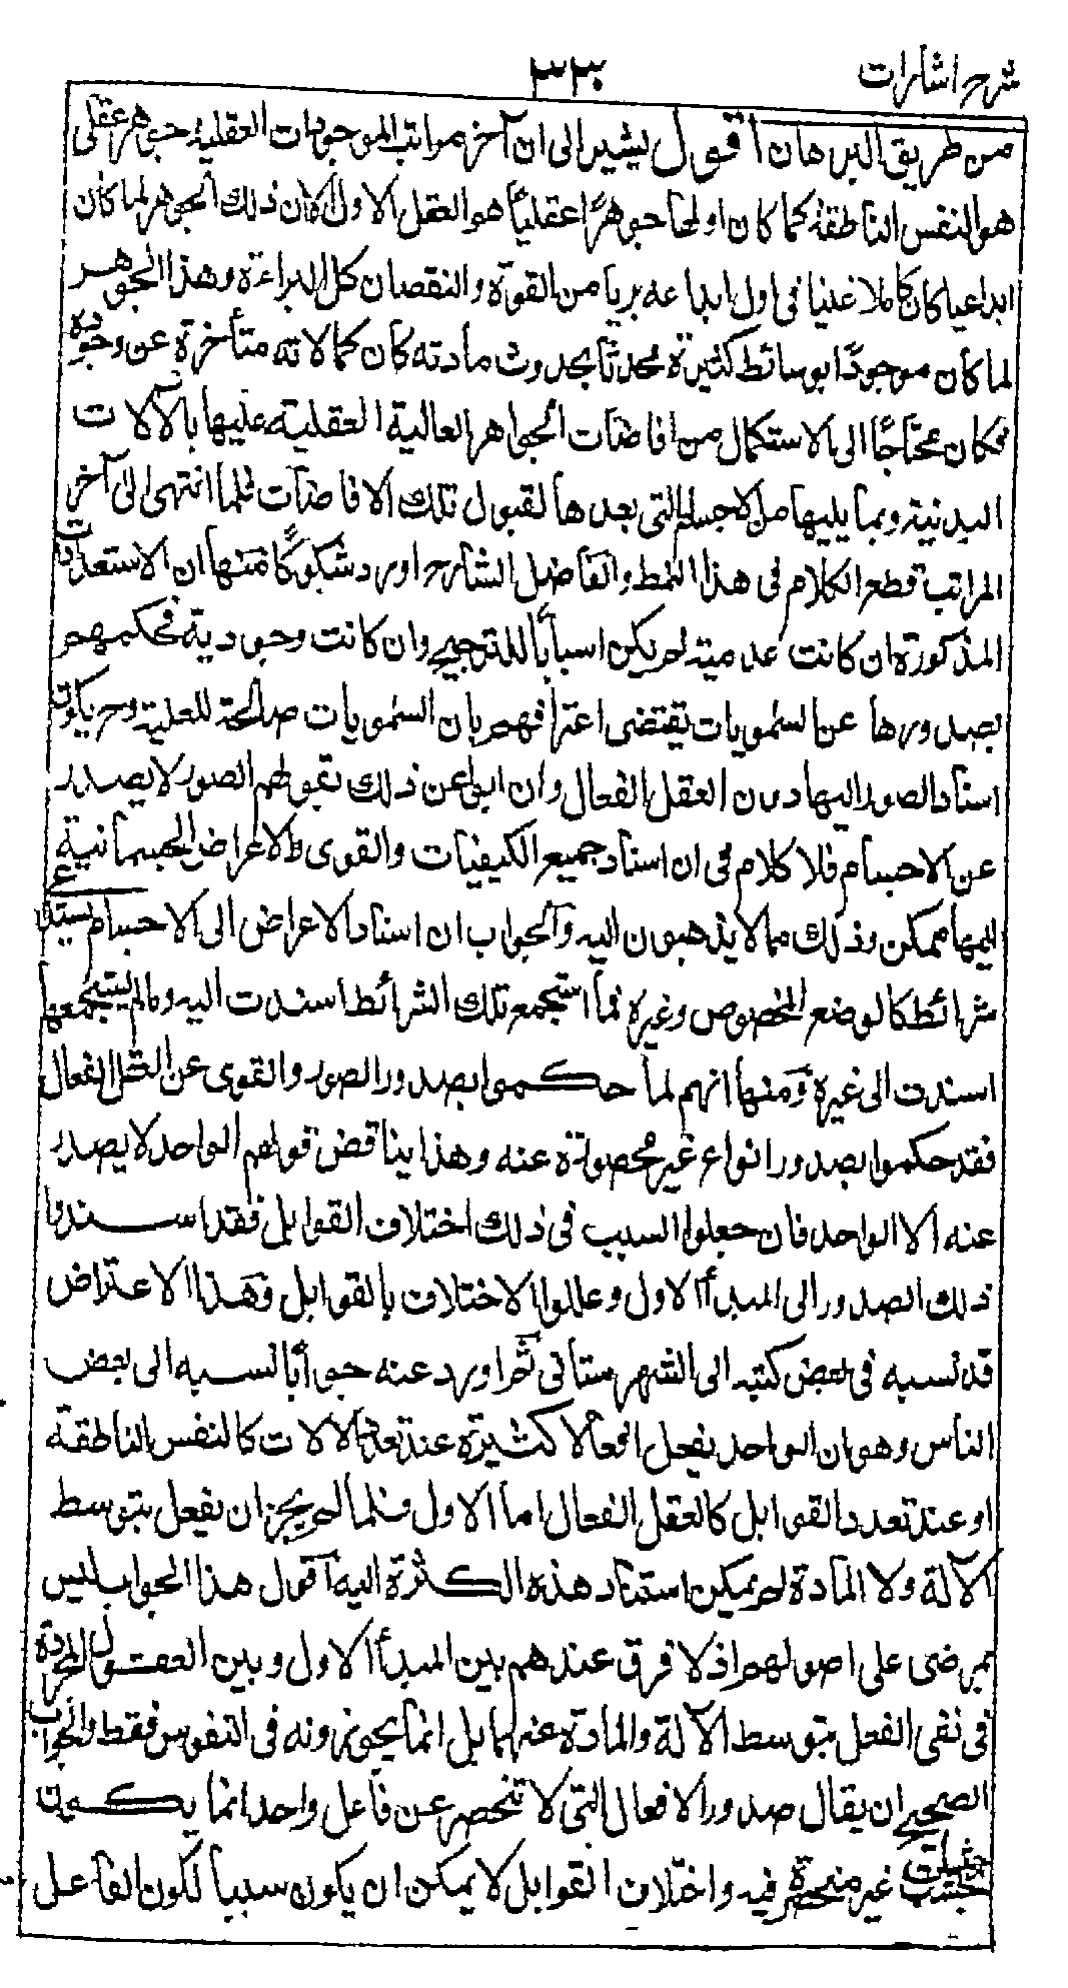 شرح اشارات
٣٣٠
من طريق البرهان أقول يشير الى ان آخر مراتب الموجودات العقلية جوهر عقلى
هو النفس الناطقة كما كان اولها جوهرًا عقليًا هو العقل الاول الا ان ذلك الجوهر لما كان
ابداعيا كان كاملا غنيا فى اول ابداعه بريا من القوة والنقصان كل البراءة وهذا الجوهر
لما كان موجودًا بوسائط كثيرة محدثا بحدوث مادته كان كمالاته متأخرة عن وجوده
فكان محتاجًا الى الاستكمال من افاضات الجواهر العالية العقلية عليها بالآلات
البدنية وبما يليها من الاجسام التى بعدها لقبول تلك الافاضات فلما انتهى الى آخر
المراتب قطع الكلام فى هذا النمط والفاضل الشارح اورد شكوكًا منها ان الاستعدادات
المذكورة ان كانت عدمية لم يكن اسبابًا للترجيح وان كانت وجودية فحكمهم
بصدورها عن السمويات يقتضى اعترافهم بان السمويات صالحة للعلية وح يكون
اسناد الصور اليها دون العقل الفعال وان ابوا عن ذلك بقولهم الصور لا يصدر
عن الاجسام فلا كلام فى ان اسناد جميع الكيفيات والقوى والاعراض الجسمانية
اليها ممكن وذلك مما لا يذهبون اليه والجواب ان اسناد الاعراض الى الاجسام يستدعى
شرائط كالوضع المخصوص وغيره فما استجمع تلك الشرائط اسندت اليه وما لم يستجمعها
اسندت الى غيره ومنها انهم لما حكموا بصدور الصور والقوى عن العقل الفعال
فقد حكموا بصدور انواع غير محصورة عنه وهذا يناقض قولهم الواحد لا يصدر
عنه الا الواحد فان جعلوا السبب فى ذلك اختلاف القوابل فقد اسندوا
ذلك الصدور الى المبدأ الاول وعللوا الاختلاف بالقوابل وهذا الاعتراض
قد نسبه فى بعض كتبه الى الشهرستانى ثم اورد عنه جوابًا نسبه الى بعض
الناس وهو ان الواحد يفعل افعالا كثيرة عند تعدد الآلات كالنفس الناطقة
او عند تعدد القوابل كالعقل الفعال اما الاول فلما لم يجز ان يفعل بتوسط
الآلة ولا المادة لم يمكن استناد هذه الكثرة اليه أقول هذا الجواب ليس
بمرضى على اصولهم اذ لا فرق عندهم بين المبدأ الاول وبين العقول المجردة
فى نفى الفعل بتوسط الآلة والمادة عنها بل انما يجوزونه فى النفوس فقط والجواب
الصحيح ان يقال صدور الافعال التى لا تنحصر عن فاعل واحد انما يكون
بحسب حيثيات غير منحصرة فيه واختلاف القوابل لا يمكن ان يكون سببًا لكون الفاعل